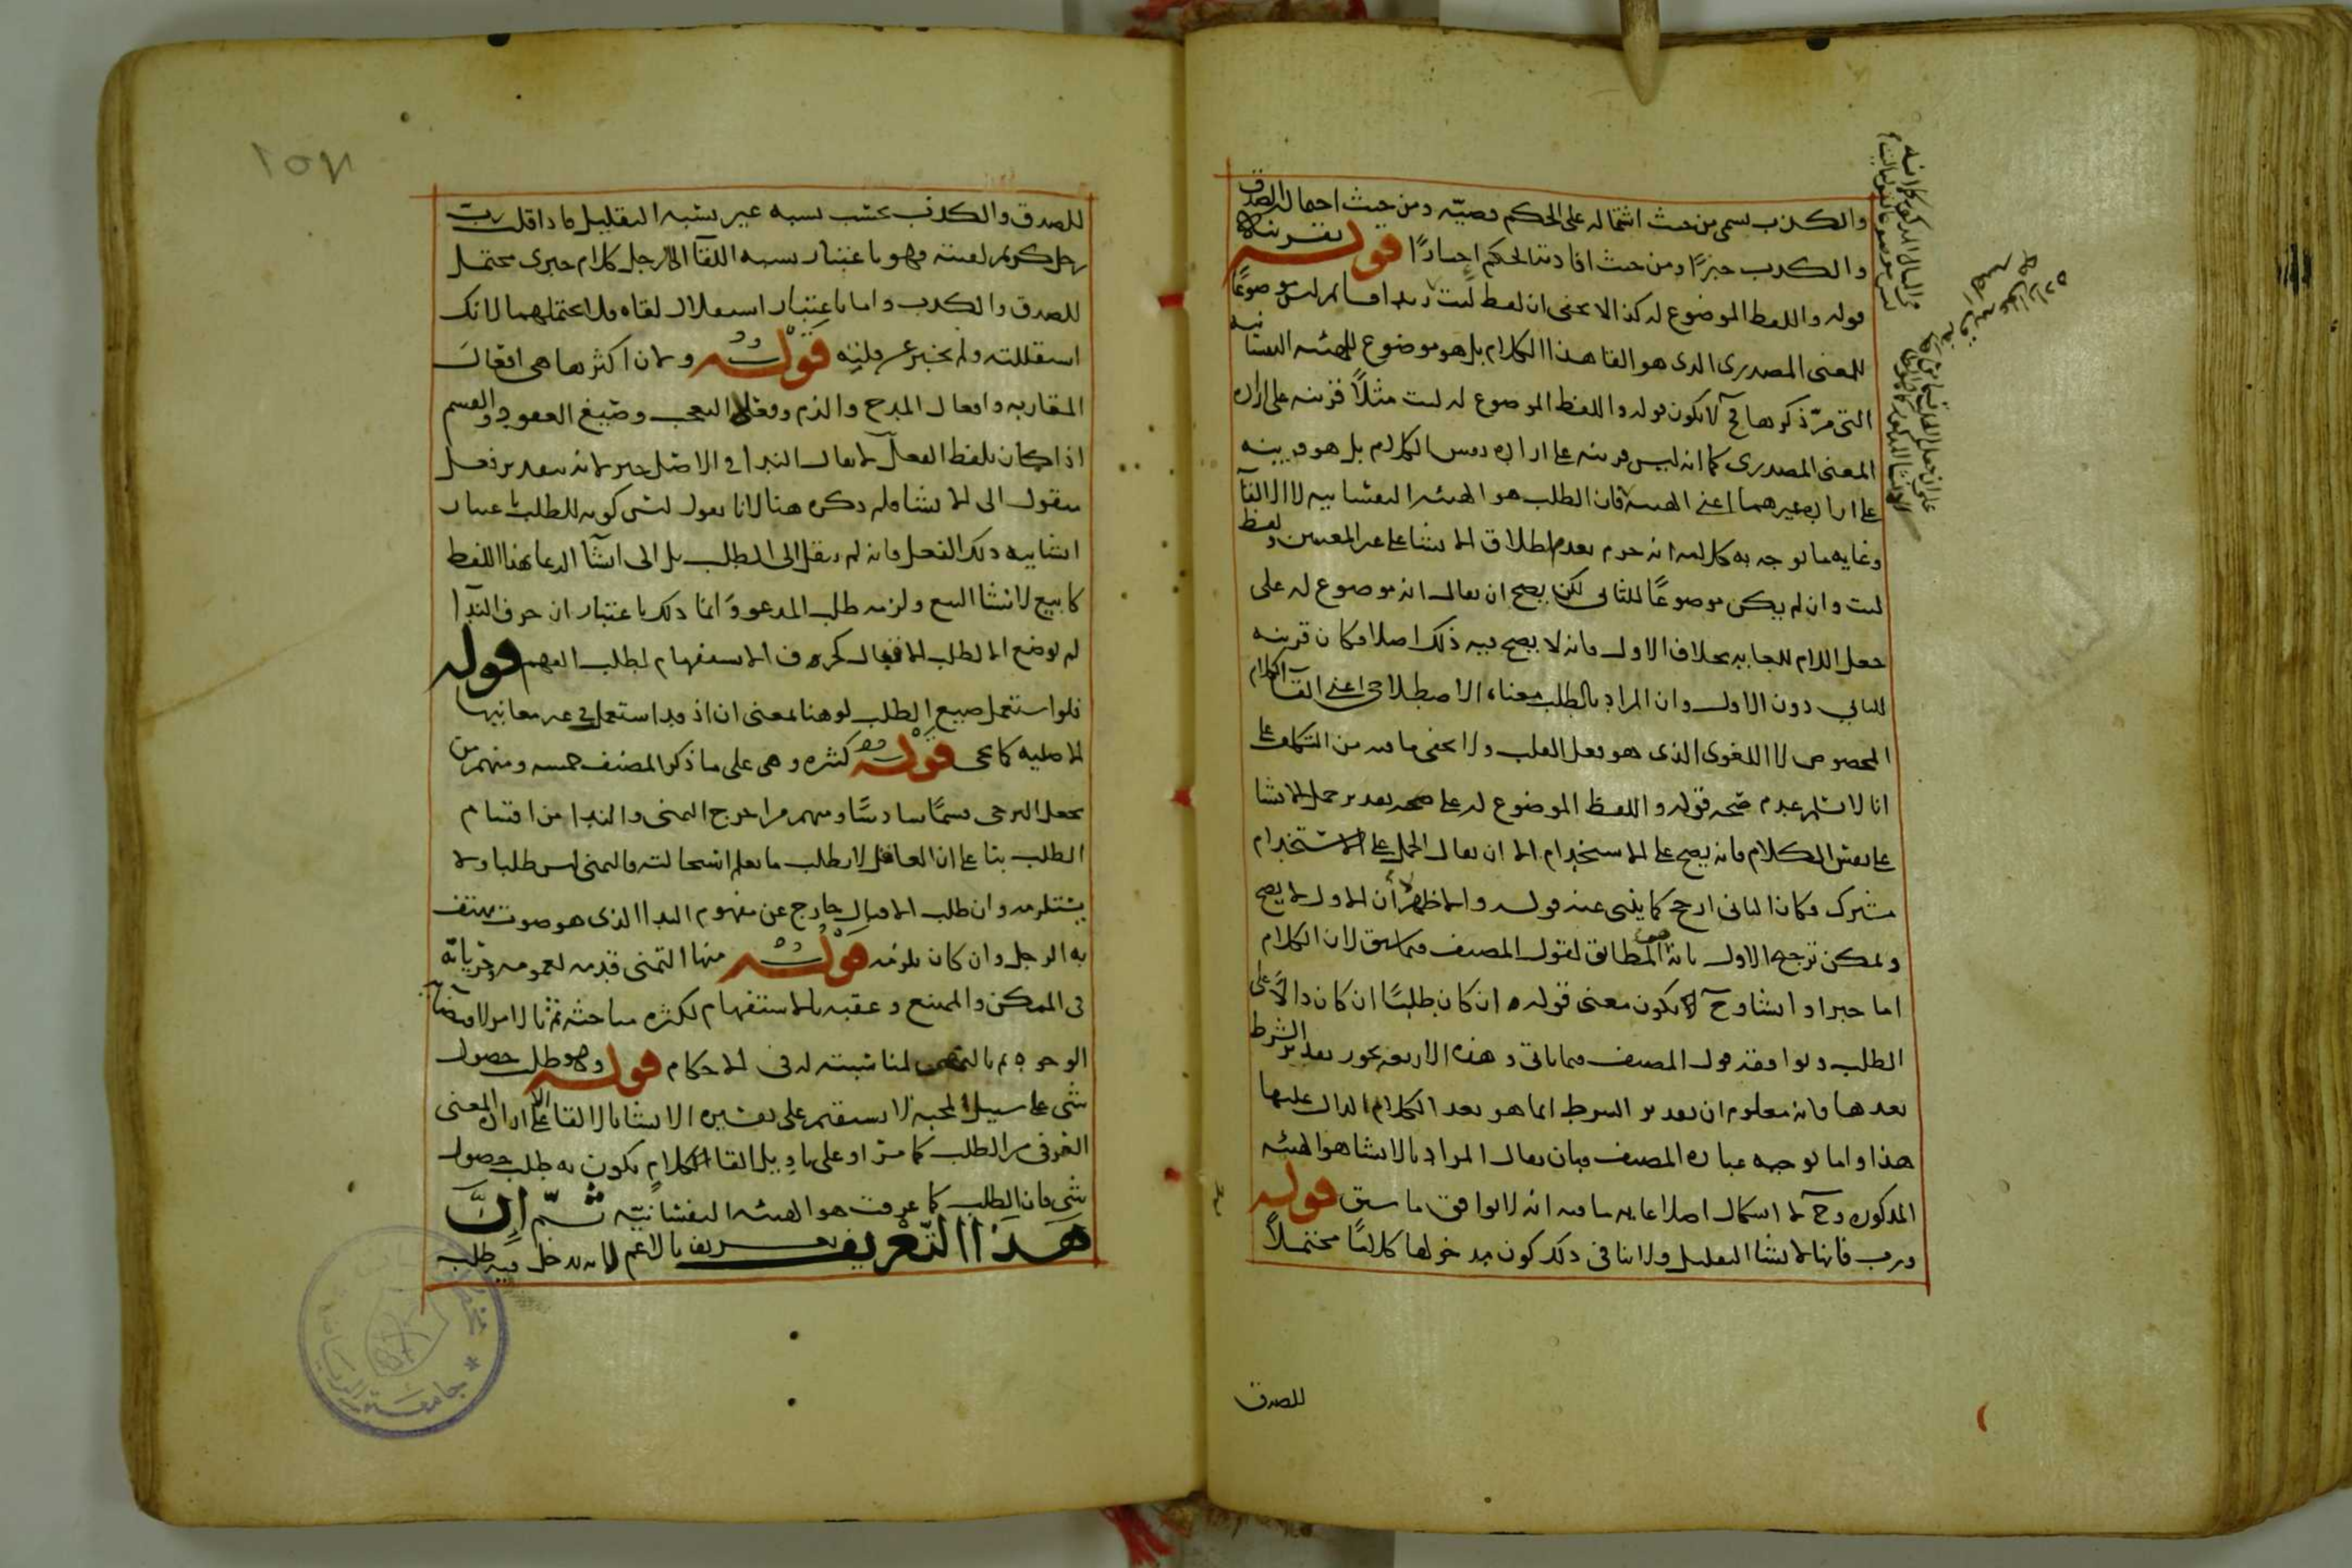 والكذب سمى من حيث اشتماله على الحكم قضية ومن حيث احتماله الصدق
والكذب خبرًا ومن حيث افادته الحكم اخبارًا قوله بقرينة
قوله واللفظ الموضوع له كذا لا يخفى ان لفظ ليت زيدا قائم ليس موضوعًا
للمعنى المصدرى الذى هو القا هذا الكلام بل هو موضوع للهيئة النفسانية
التى مرّ ذكرها فح لا يكون قوله واللفظ الموضوع له ليت مثلاً قرينة على ارادة
المعنى المصدرى كما انه ليس قرينة على ارادة نفس الكلام بل هو قرينة
على ارادة غيرهما اعنى الهيئة فان الطلب هو الهيئة النفسانية لا الالقا
وغاية ما يوجه به كلامه انه جزم بعدم اطلاق الانشا على غير المعنيين ولفظ
ليت وان لم يكن موضوعًا للثانى لكن يصح ان يقال انه موضوع له على
جعل اللام للغاية بخلاف الاول فانه لا يصح فيه ذلك اصلا فكان قرينة
للثانى دون الاول وان المراد بالطلب معناه الاصطلاحى اعنى القا الكلام
المخصوص لا اللغوى الذى هو فعل القلب ولا يخفى ما فيه من التكلف على
انا لا نسلم عدم صحة قوله واللفظ الموضوع له على صحة تقدير حمل الانشا
على نفس الكلام فانه يصح على الاستخدام الا ان يقال الحمل على الاستخدام
مشترك فكان الثانى ارجح كما ينبى عنه قوله والاظهر لان الاول لا يصح
ويمكن ترجيح الاول بانه المطابق لقول المصنف فيما سبق لان الكلام
اما خبر او انشا وح لا يكون معنى قوله ان كان طلبًا ان كان دالاً على
الطلب ويوافقه قول المصنف فيما ياتى وهذه الاربعة يجوز تقدير الشرط
بعدها فانه معلوم ان تقدير الشرط انما هو بعد الكلام الدال عليها
هذا واما توجيه عبارة المصنف فبان يقال المراد بالانشا هو الهيئة
المذكورة وح لا اشكال اصلا غاية ما فيه انه لا يوافق ما سبق قوله
ورب فانها لانشا التقليل ولا ينافى ذلك كون مدخولها كلامًا محتملاً
للصدق
للصدق والكذب بحسب نسبة غير نسبة التقليل فاذا قلت رب
رجل كريم لقيته فهو باعتبار نسبة اللقا الى الرجل كلام خبرى محتمل
للصدق والكذب واما باعتبار استقلال لقاه فلا يحتملهما لانك
استقللته ولم تخبر عن قلته قوله ولان اكثرها هى افعال
المقاربة وافعال المدح والذم وفعلا التعجب وصيغ العقود والقسم
اذا كان بلفظ الفعل لا يقال الندا فى الاصل خبر لانه بتقدير فعل
منقول الى الانشا فلم ذكره هنا لانا نقول ليس كونه للطلب باعتبار
انشائية ذلك الفعل فانه لم ينقل الى الطلب بل الى انشا الدعا بهذا اللفظ
كابيع لانشا البيع ولزمه طلب المدعو وانما ذلك باعتبار ان حرف الندا
لم يوضع الا لطلب الاقبال كحرف الاستفهام لطلب الفهم قوله
فلو استعمل صيغ الطلب لو هنا بمعنى ان اذ قد استعمل فى غير معانيها
الاصلية كما يجى قوله كثيرة وهى على ما ذكر المصنف خمسة ومنهم من
يجعل الترجى قسمًا سادسًا ومنهم من اخرج التمنى والندا من اقسام
الطلب بنا على ان العاقل لا يطلب ما يعلم استحالته فالتمنى ليس طلبا ولا
يستلزمه وان طلب الاقبال خارج عن مفهوم الندا الذى هو صوت يهتف
به الرجل وان كان يلزمه قوله منها التمنى قدمه لعمومه وجريانه
فى الممكن والممتنع وعقبه بالاستفهام لكثرة مباحثه ثم بالامر لاقتضا
الوجود ثم بالنهى لمناسبته له فى الاحكام قوله وهو طلب حصول
شى على سبيل المحبة لا يستقيم على تفسيره الانشا بالالقا الا على ارادة المعنى
العرفى من الطلب كما مر او على تاويل القا الكلام يكون به طلب حصول
شى فان الطلب كما عرفت هو الهيئة النفسانية ثم ان
هذا التعريف تعريف بالاعم لانه يدخل فيه طلب